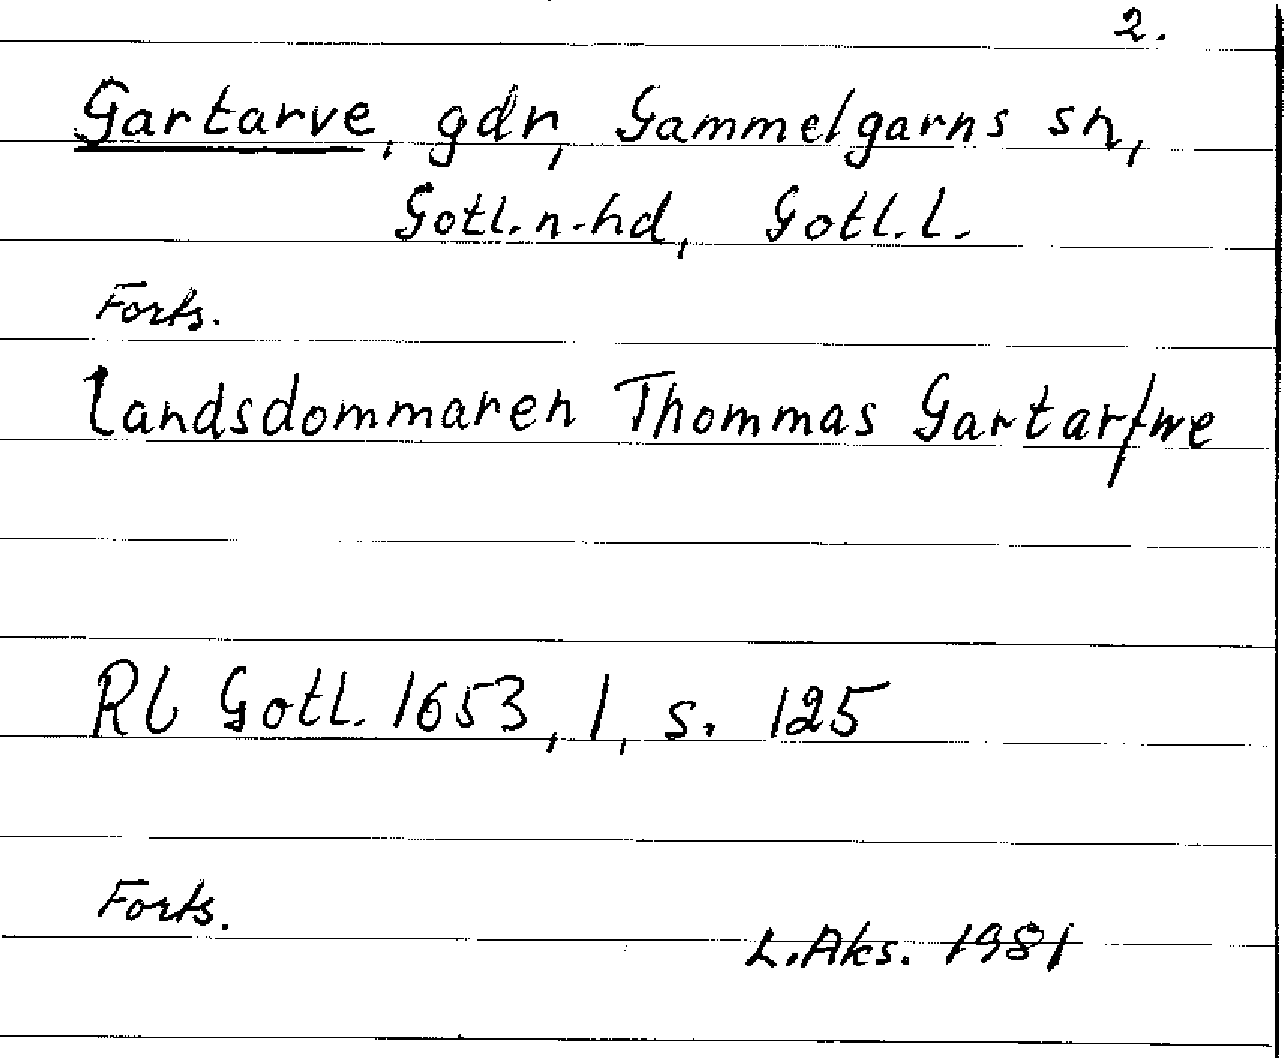 2.
Gartarve, gdr, Gammelgarns sn,
Gotl. n. hd, Gotl. l.
Forts.
Landsdommaren Thommas Gartarfwe
Rb Gotl. 1653, 1, s. 125
Forts.
L. Aks. 1981